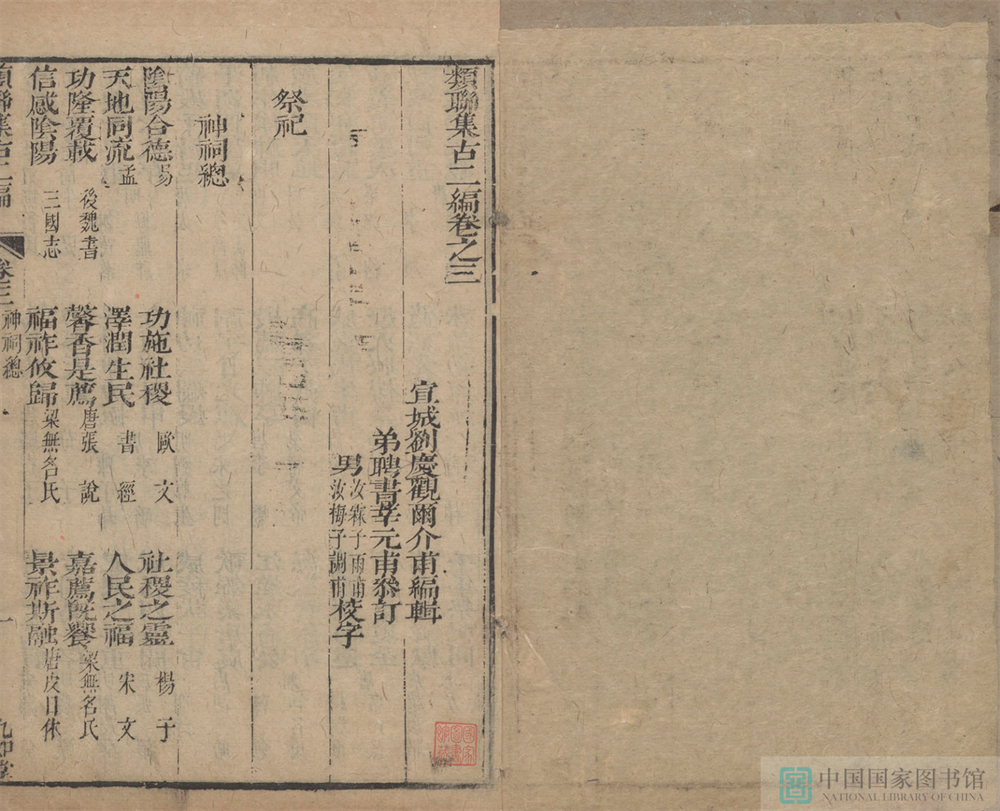 類聯集古二編卷之三
宣城劉慶觀爾介甫編輯
弟聘書莘元甫叅訂
男汝霖子雨甫
汝梅子調甫校字
祭祀
神祠總
陰陽合德易
功施社稷歐文
社稷之靈楊子
天地同流孟
澤潤生民書經
人民之福宋文
功隆覆載後魏書
馨香是薦唐張說
嘉薦旣饗梁無名氏
信感陰陽三國志
福祚攸歸梁無名氏
景祚斯融唐皮日休
類聯集古二編
卷三
神祠總
一
中国国家图书馆
NATIONAL LIBRARY OF CHINA